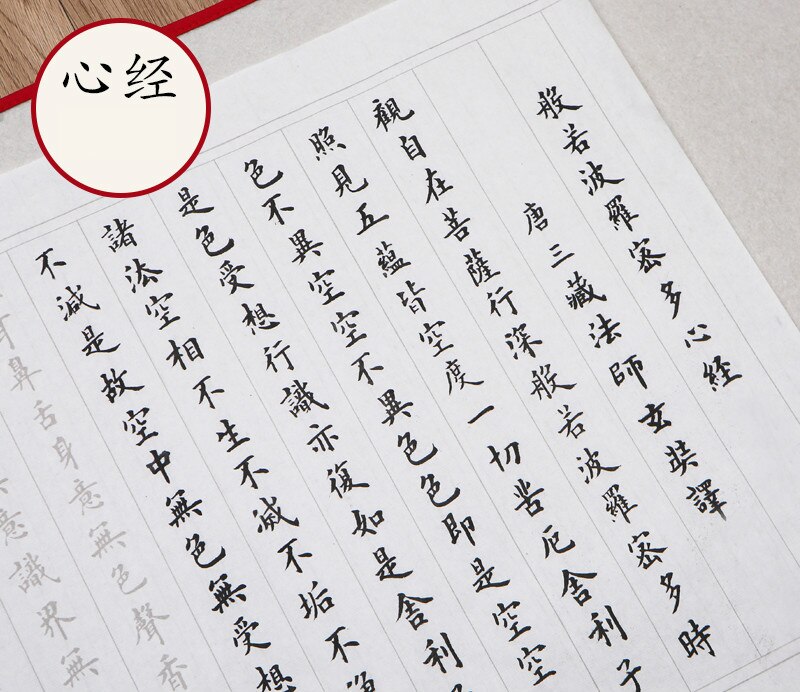 心经
般若波羅密多心經
唐三藏法師玄奘譯
觀自在菩薩行深般若波羅密多時
照見五蘊皆空度一切苦厄舍利子
色不異空空不異色色即是空空
是色受想行識亦復如是舍利
諸法空相不生不滅不垢不
不減是故空中無色無受想
鼻舌身意無色聲香
意識界無